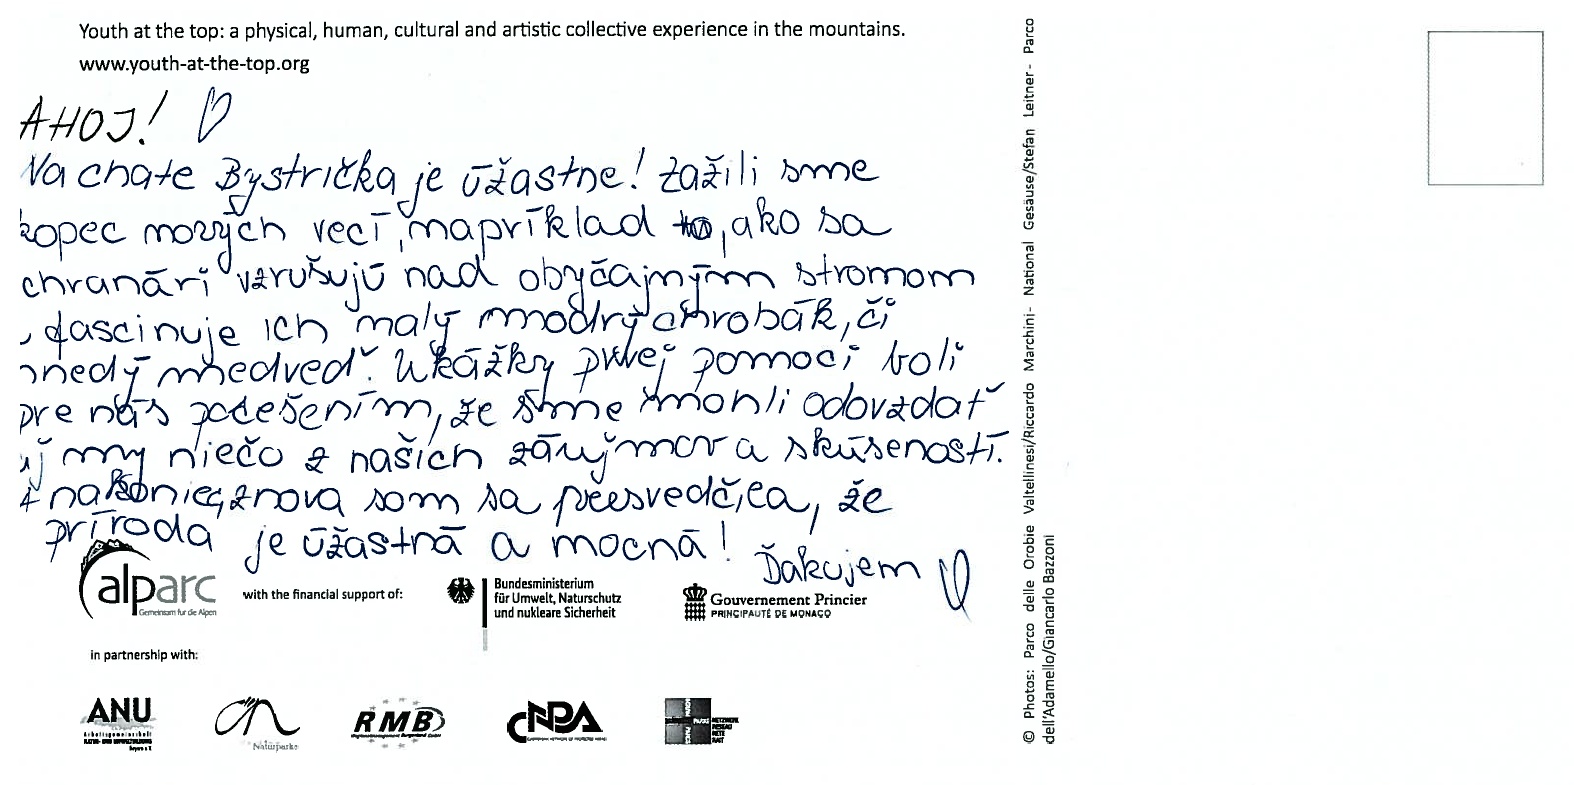 Youth at the top: a physical, human, cultural and artistic collective experience in the mountains.
www.youth-at-the-top.org
AHOJ!
Na chate Bystrička je úžastne! Zažili sme
kopec nových vecí, napríklad to, ako sa
chranári vzrušujú nad obyčajným stromom
, fascinuje ich malý modrý chrobák, či
hnedý medveď. Ukážky prvej pomoci boli
pre nás potešením, že sme mohli odovzdať
aj my niečo z našich záujmov a skúseností.
A nakoniec, znova som sa presvedčila, že
príroda je úžastná a mocná!
Ďakujem
alparc
Gemeinsam für die Alpen
with the financial support of:
Bundesministerium
für Umwelt, Naturschutz
und nukleare Sicherheit
Gouvernement Princier
PRINCIPAUTÉ DE MONACO
in partnership with:
ANU
Naturparke
RMB
CNPA
© Photos: Parco delle Orobie Valtellinesi/Riccardo Marchini- National Gesäuse/Stefan Leitner- Parco
dell'Adamello/Giancarlo Bazzoni